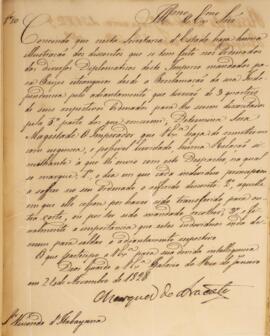 N.º 10
Illmo. e Exmo. Snr.
Convindo que nesta Secretaria d'Estado haja huma
illustração dos descontos que se tem feito nos Ordenados
dos diversos Diplomaticos deste Imperio mandados pa-
ra Paizes estrangeiros desde a Proclamação da sua Inde-
pendencia pelo adiantamento que tiverão de 3 quarteis
de seus respectivos Ordenados para lhe serem descontados
pela 5ª parte do que vencerem, Determina Sua
Magestade O Imperador que V. Sª haja de remetter-me
com urgencia, e possivel brevidade huma Relação si-
milhante á que lhe envio com este Despacho, na qual
se marque, 1.º o dia em que cada individuo principiou
a soffrer no seu Ordenado o referido desconto; 2.º aquelle
em que elle cessou por haver sido transferido para ou-
tra corte, ou por ter sido mandado recolher; 3.º e fi-
nalmente a importancia que estes individuos inda de-
vem para saldar o adiantamento respectivo.
O que participo a V. Sª para sua devida intelligencia
Deos Guarde a V. Sª Palacio do Rio de Janeiro
em 21 de Novembro de 1828.
Marquez de Aracaty
Sr. Visconde d'Itabayana